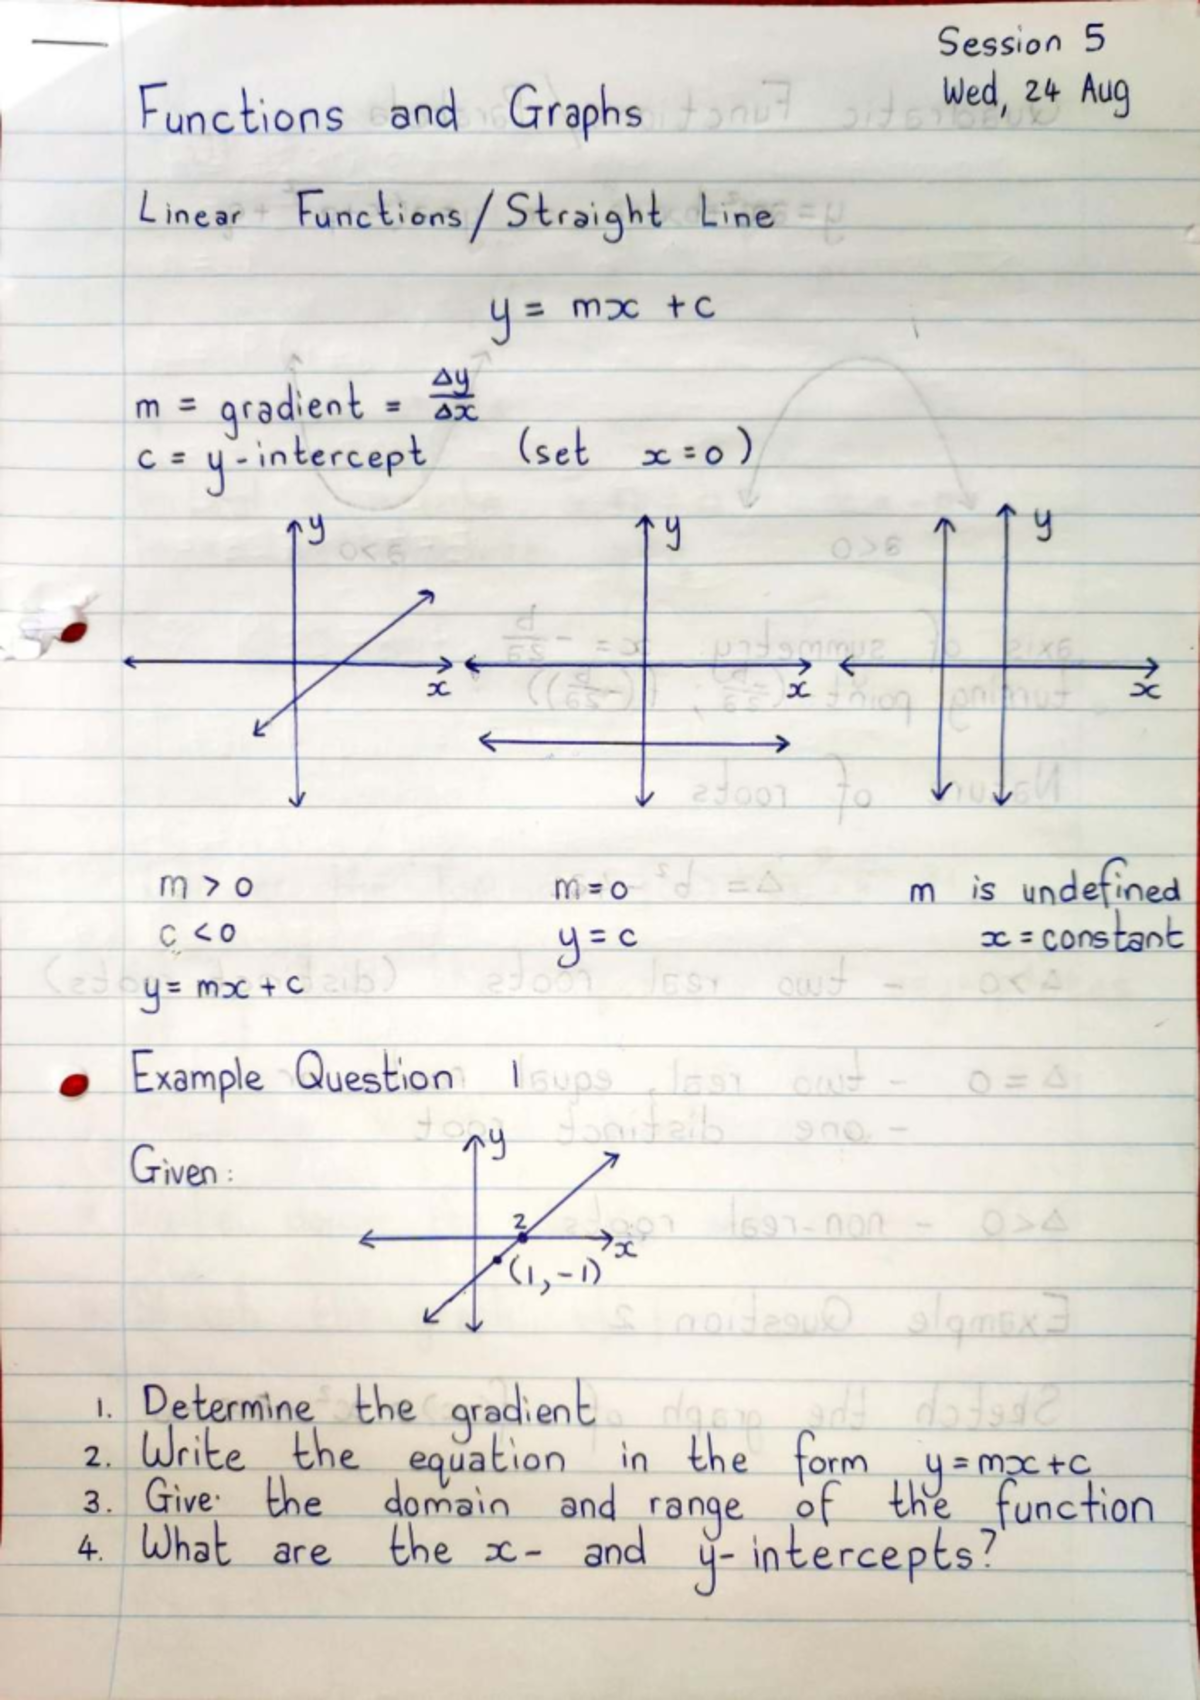 Session 5
Wed, 24 Aug
Functions and Graphs
Linear Functions/Straight Line
y = mx + c
m = gradient = Δy/Δx
c = y-intercept (set x=0)
y y y
x x x
m > 0 m=0 m is undefined
c < 0 y = c x = constant
y = mx + c
Example Question 1
Given:
y
2
x
(1,-1)
1. Determine the gradient
2. Write the equation in the form y=mx+c
3. Give the domain and range of the function
4. What are the x- and y-intercepts?